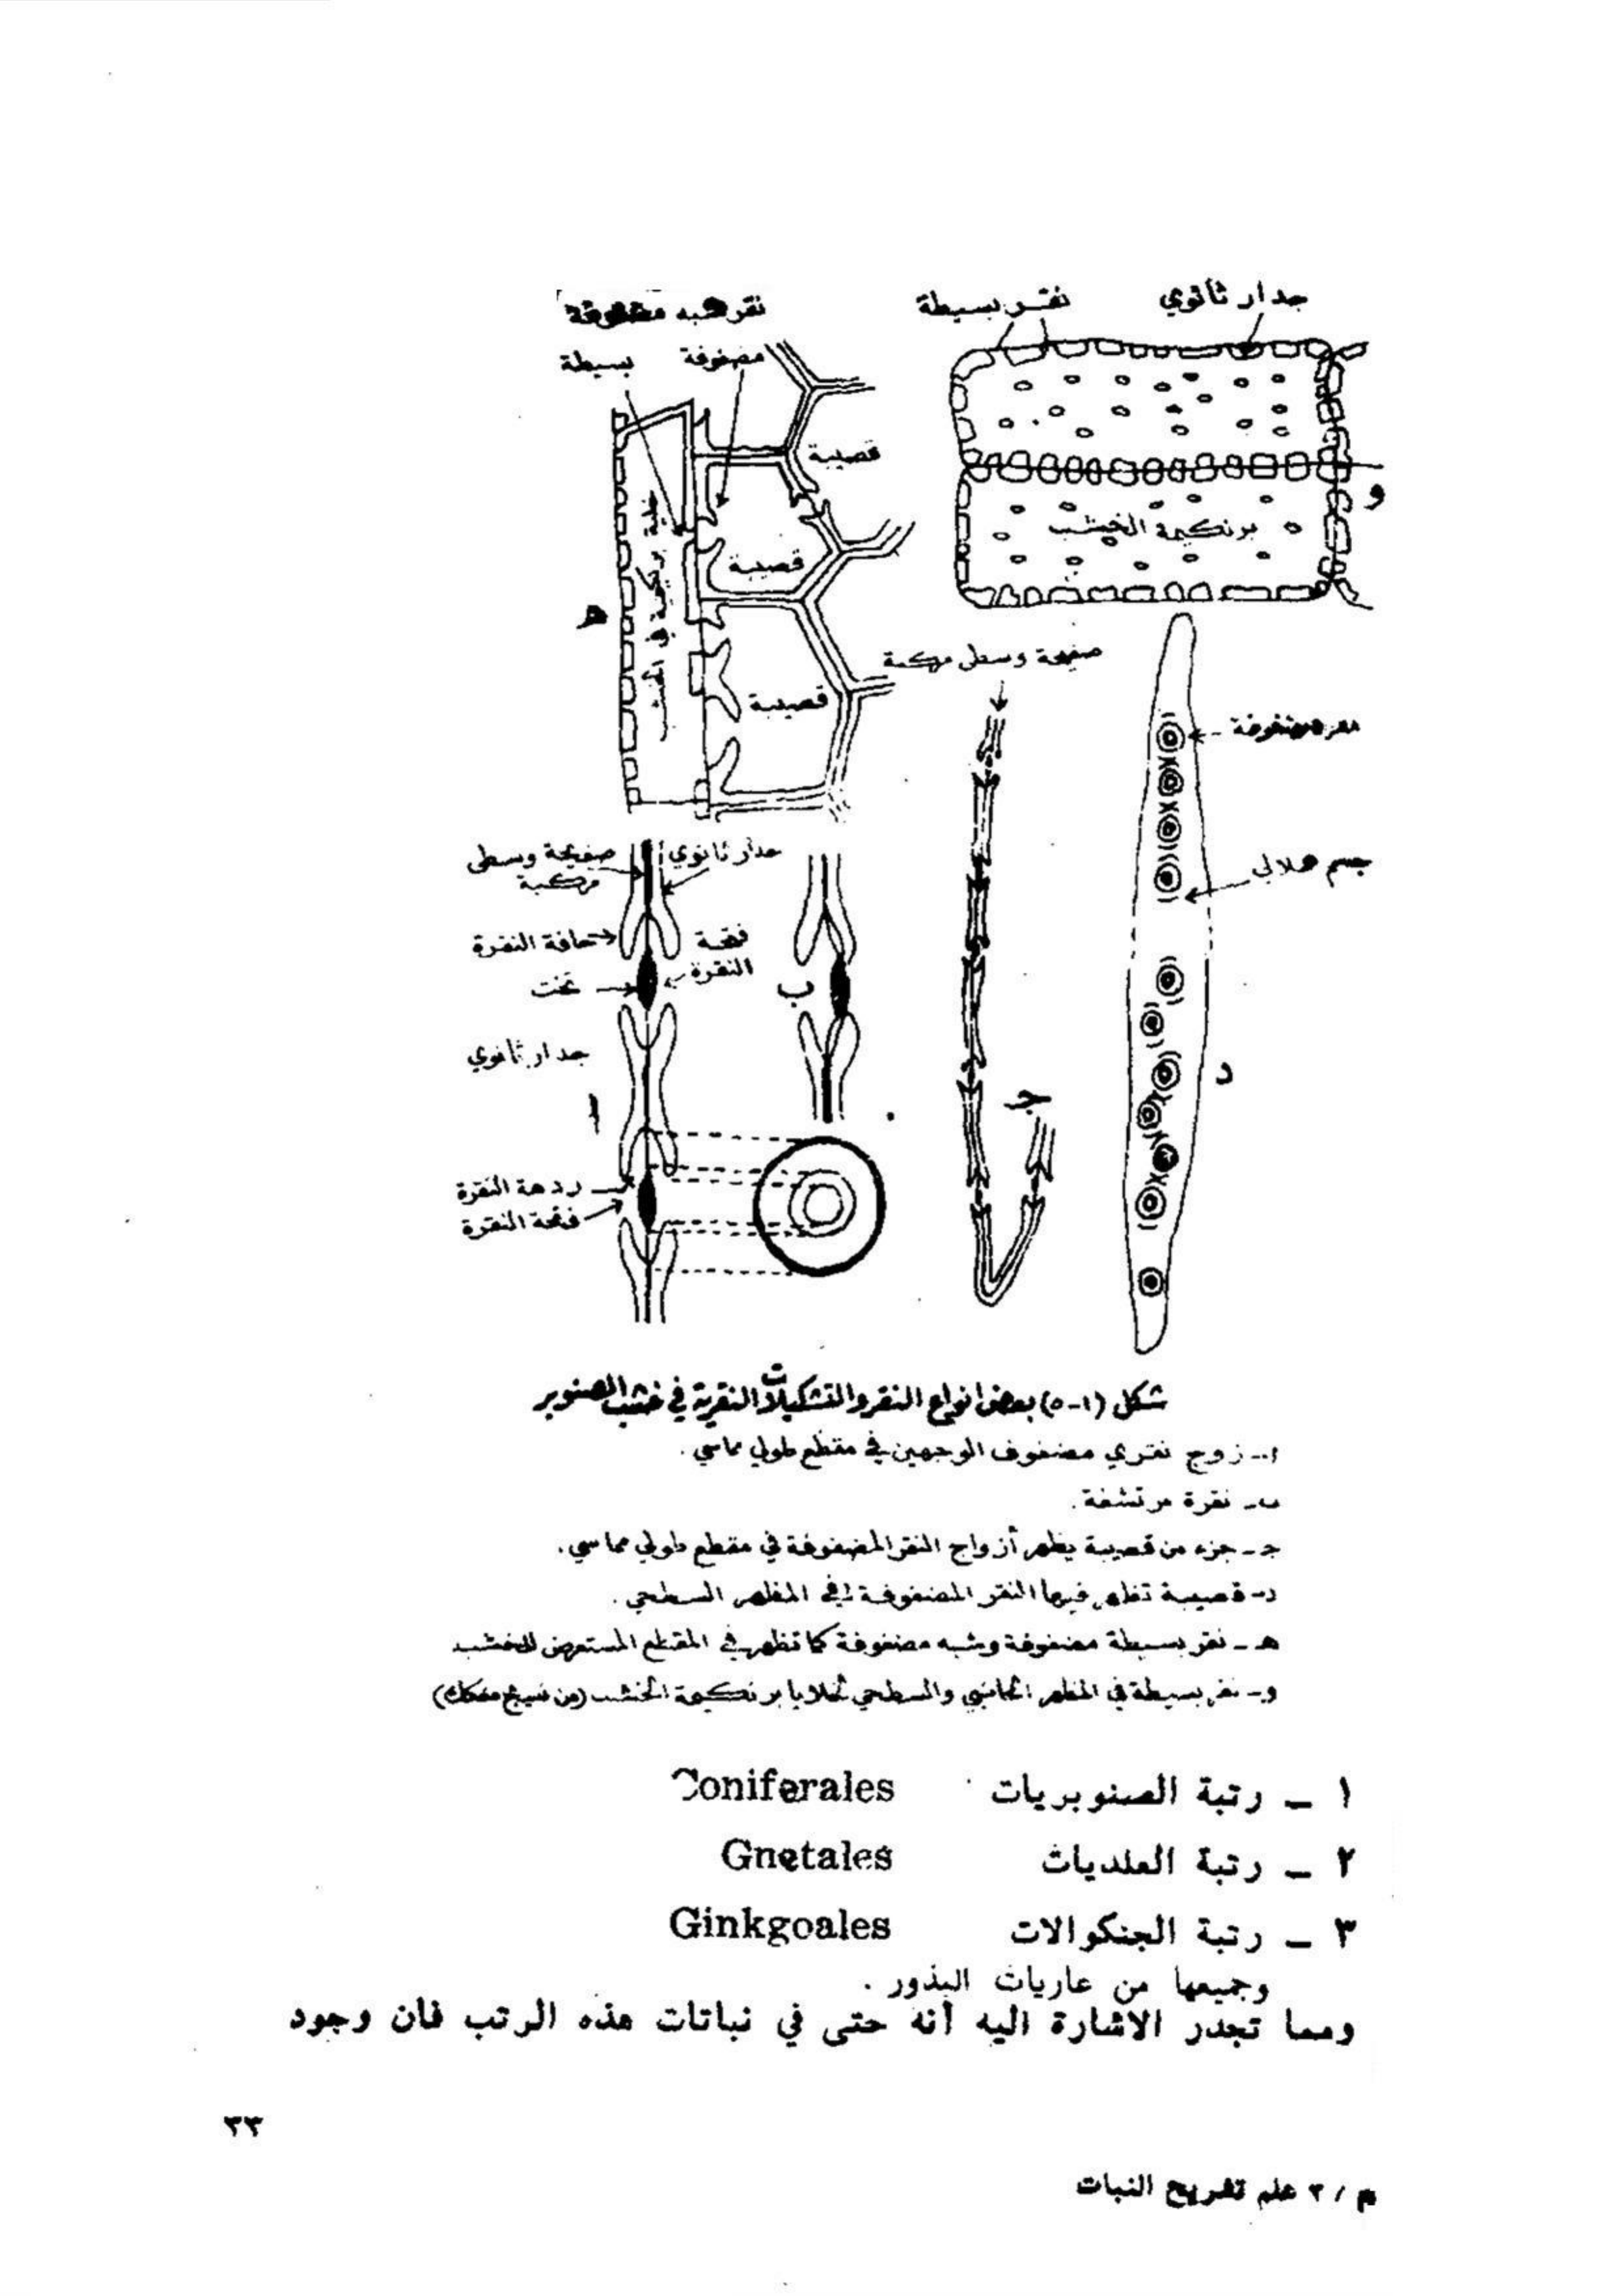 جدار ثانوي
نقر بسيطة
نقر شبه مضفوفة
مضفوفة
بسيطة
قصيبة
و
برنكيمة الخشب
قصيبة
هـ
صفيحة وسطى مركبة
قصيبة
مضفوفة
جدار ثانوي
صفيحة وسطى
مركبة
جسم هلالي
حافة النقرة
فتحة
النقرة
تخت
ب
جدار ثانوي
د
ا
جـ
ردهة النقرة
فتحة النقرة
شكل (١-٥) بعض انواع النقر والتشكيلات النقرية في خشب الصنوبر
ا- زوج نقري مضفوف الوجهين في مقطع طولي مماسي .
ب- نقرة مرتشفة .
جـ - جزء من قصيبة يظهر أزواج النقر المضفوفة في مقطع طولي مماسي .
د- قصيبة تظهر فيها النقر المضفوفة في المظهر السطحي .
هـ - نقر بسيطة مضفوفة وشبه مضفوفة كما تظهر في المقطع المستعرض للخشب
و- نقر بسيطة في المظهر الجانبي والسطحي لخلايا برنكيمة الخشب (من نسيج مفكك)
١ – رتبة الصنوبريات Coniferales
٢ – رتبة العلديات Gnetales
٣ – رتبة الجنكوالات Ginkgoales
وجميعها من عاريات البذور .
ومما تجدر الاشارة اليه أنه حتى في نباتات هذه الرتب فان وجود
٣٣
م / ٣ علم تشريح النبات